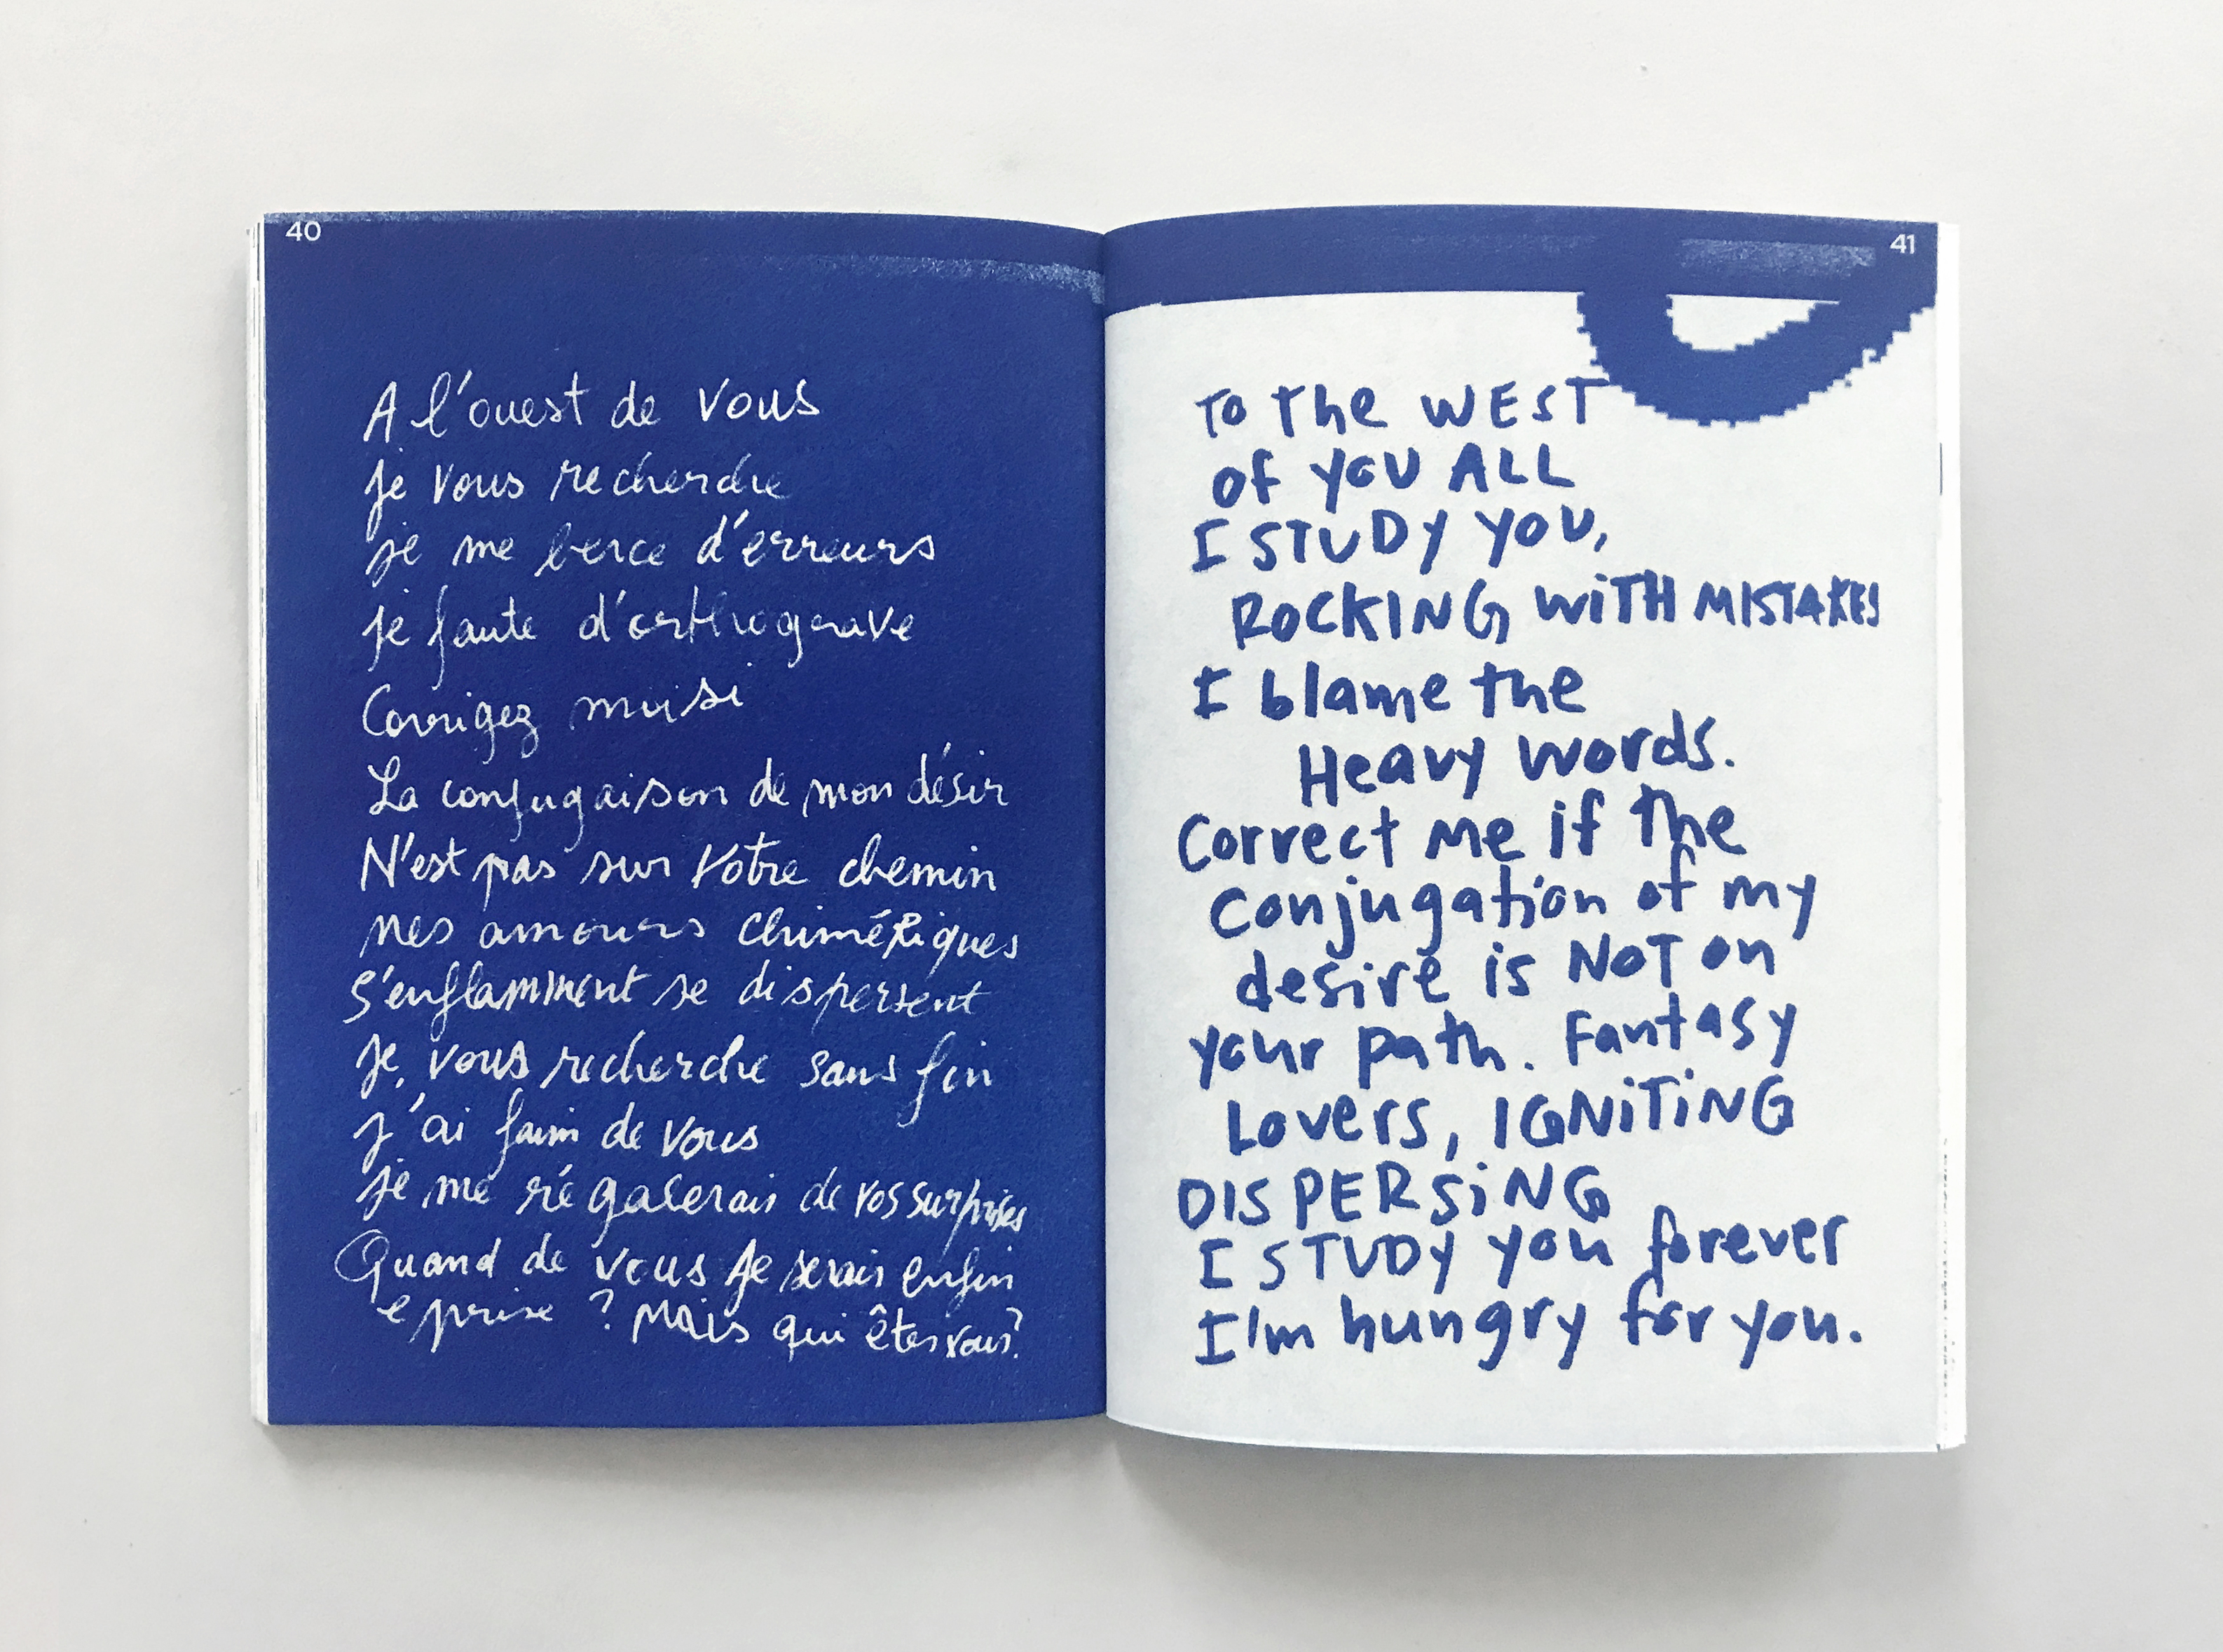 40
A l'ouest de vous
je vous recherche
je me berce d'erreurs
je faute d'orthograve
Corrigez moi si
La conjugaison de mon désir
N'est pas sur votre chemin
mes amours chimériques
S'enflamment se dispersent
Je vous recherche sans fin
j'ai faim de vous
je me régalerais de vos surprises
Quand de vous je serais enfin
eprise ? Mais qui êtes vous?
41
To the WEST
of you ALL
I STUDY YOU,
ROCKING WiTH MISTAKES
I blame the
Heavy words.
Correct me if the
Conjugation of my
desire is NOT on
your path. Fantasy
Lovers, IGNiTiNG
DISPERSiNG
I STUDY you forever
I'm hungry for you.